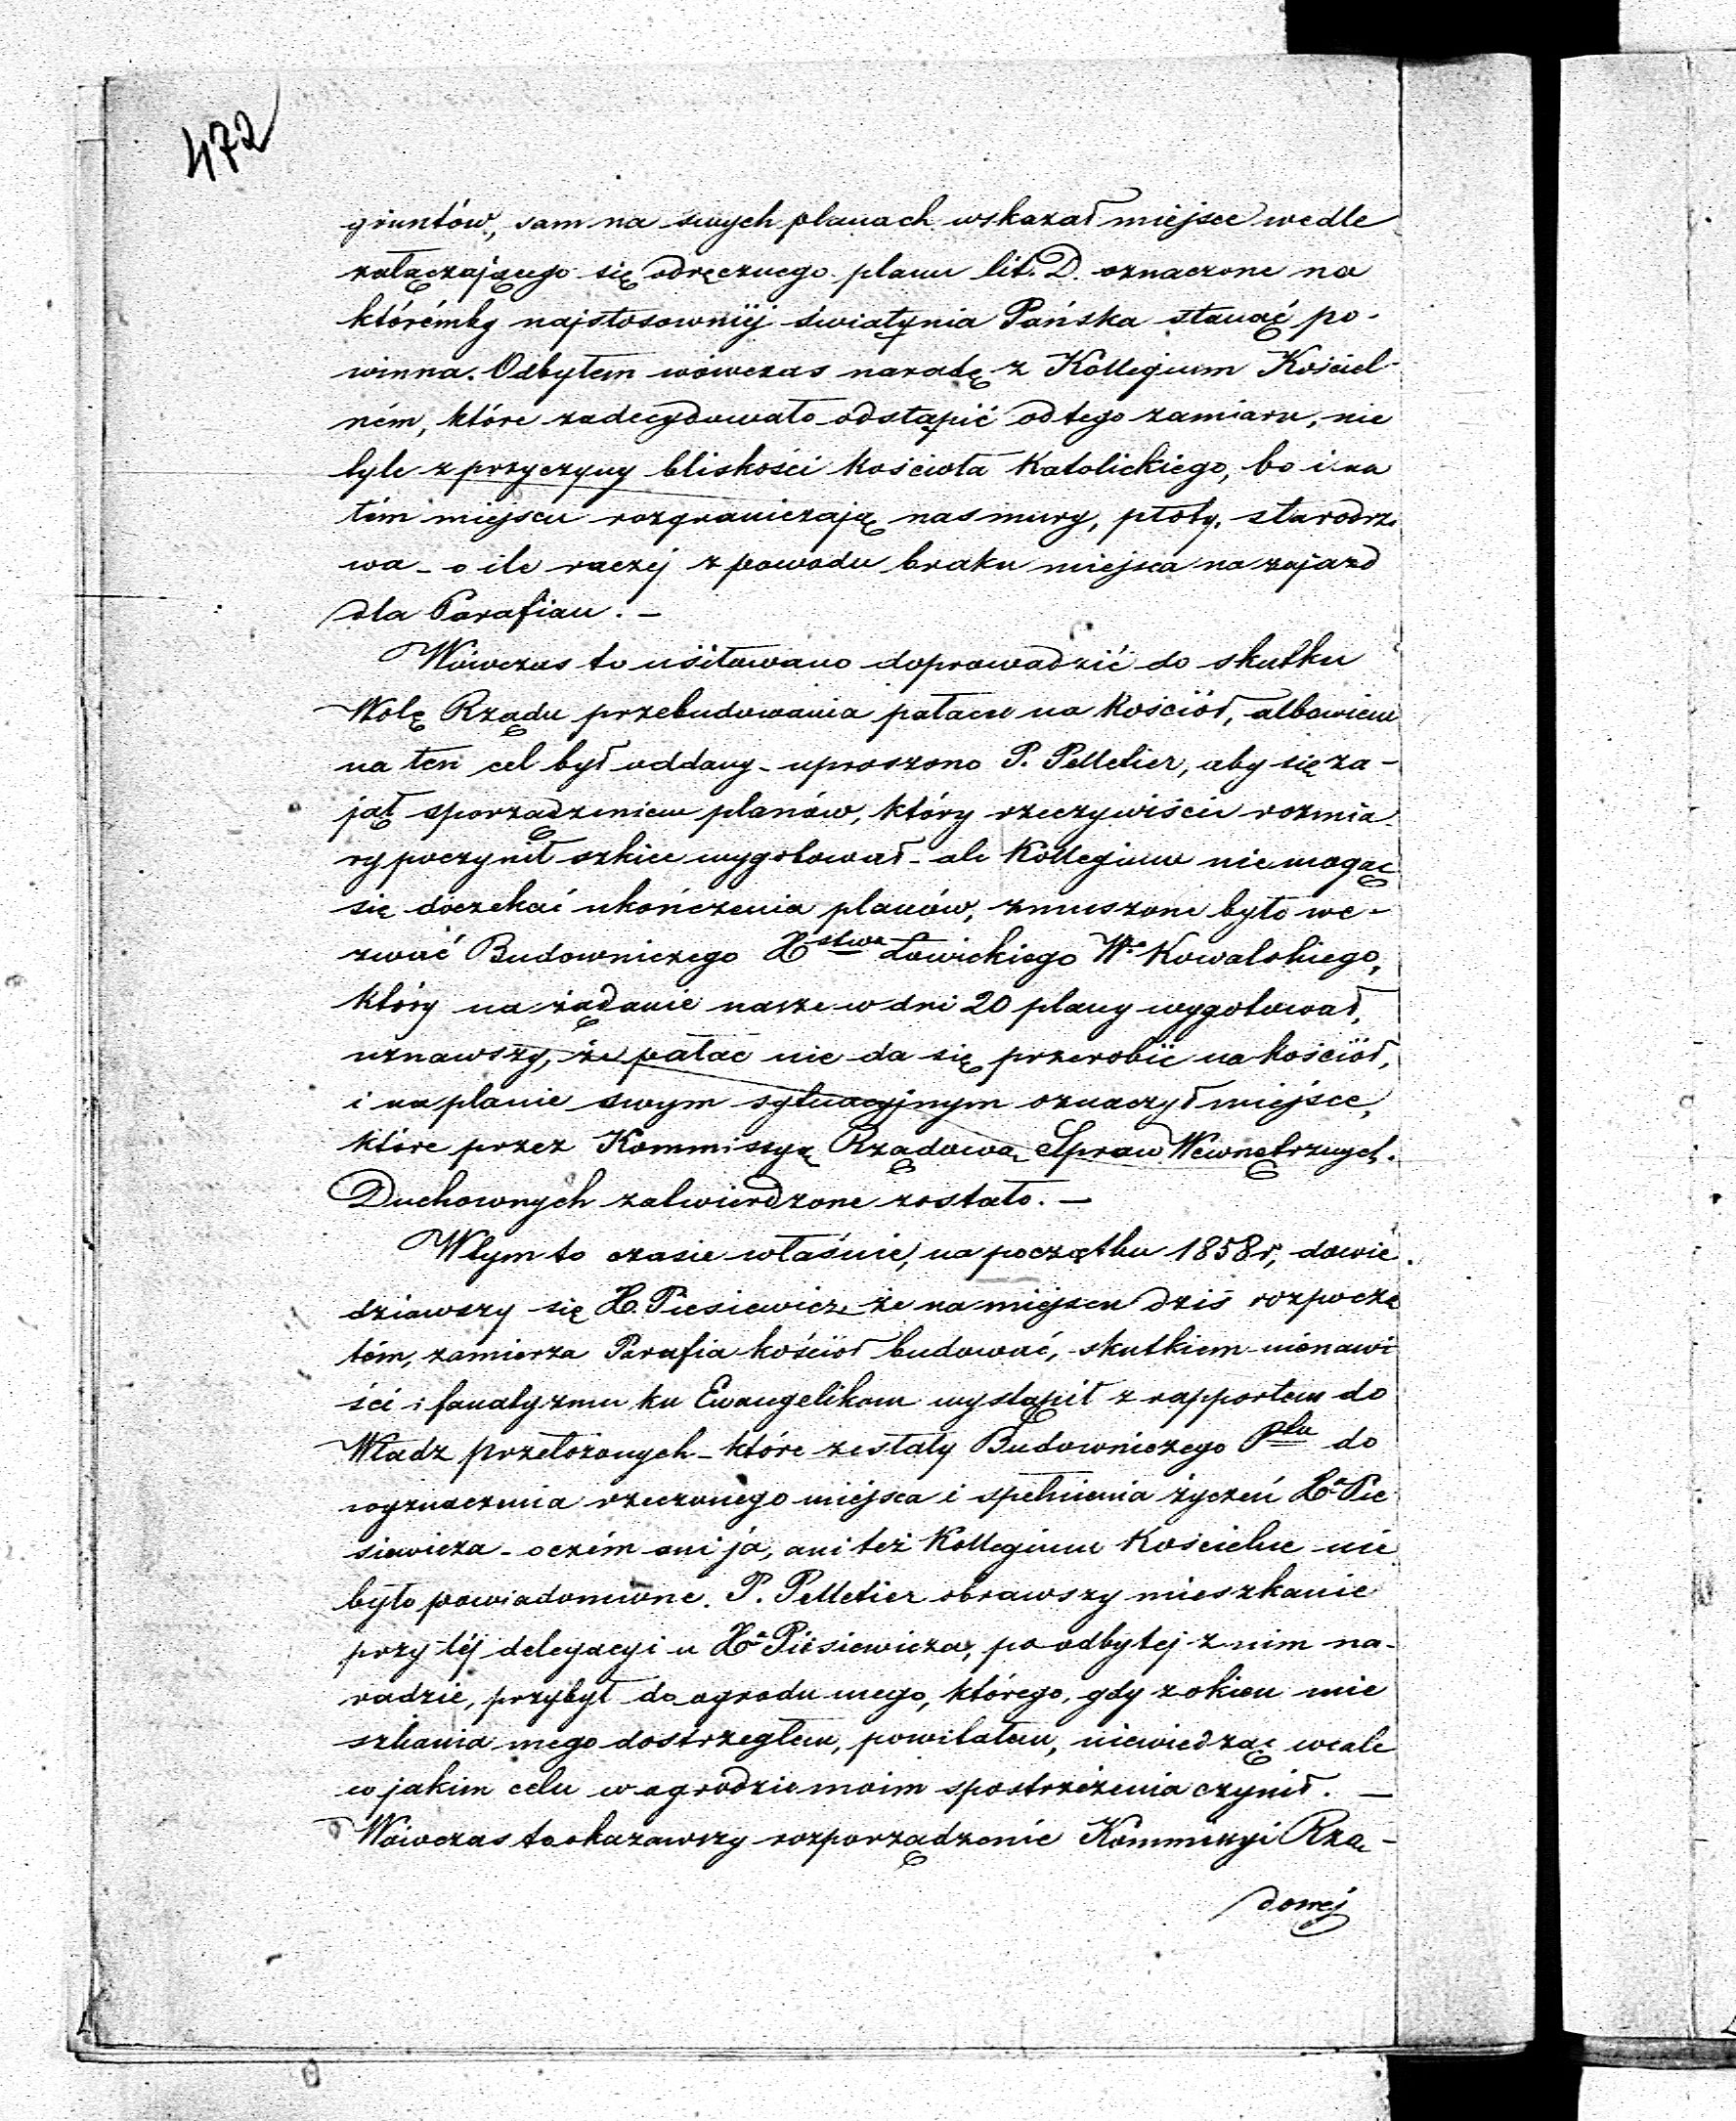 472
gruntów, sam na swych planach wskazał miejsce wedle
załączającego się odręcznego planu lit. D. oznaczone na
którémby najstosowniéj świątynia Pańska stanąć po-
winna. Odbyłem wówczas naradę z Kollegium Kościel-
ném, które zadecydowało odstąpić od tego zamiaru, nie
tyle z przyczyny bliskości Kościoła Katolickiego, bo i na
tém miejscu rozgraniczają nas mury, płoty, starodrze
wa - o ile raczéj z powodu braku miejsca na zajazd
dla Parafian. -
Wówczas to usiłowano doprowadzić do skutku
Wolę Rządu przebudowania pałacu na Kościół, albowiem
na ten cel był oddany - uproszono P. Pelletier, aby się za-
jął sporządzeniem planów, który rzeczywiście rozmia-
ry poczynił szkice wygotował - ale Kollegium nie mogąc
się doczekać ukończenia planów, zmuszone było we-
zwać Budowniczego Xstwa Łowickiego Wo Kowalskiego,
który na żądanie nasze w dni 20 plany wygotował,
uznawszy, że pałac nie da się przerobić na kościół,
i na planie swym sytuacyjnym oznaczył miejsce,
które przez Kommissyę Rządową Spraw Wewnętrznych.
Duchownych zatwierdzone zostało. -
W tym to czasie właśnie, na początku 1858 r, dowie
dziawszy się X. Piesiewicz że na miejscu dziś rozpoczę
tém, zamierza Parafia kościół budować, skutkiem nienawi
ści i fanatyzmu ku Ewangelikom wystąpił z rapportem do
Władz przełożonych - które zesłały Budowniczego Ptu do
wyznaczenia rzeczonego miejsca i spełnienia życzeń Xa Pie
siewicza - o czém ani ja, ani też Kollegium Kościelne nie
było powiadomione. P. Pelletier obrawszy mieszkanie
przy téj delegacyi u Xa Piesiewicza, po odbytej z nim na-
radzie, przybył do ogrodu mego, którego, gdy z okien mie
szkania mego dostrzegłem, powitałem, niewiedząc wcale
w jakim celu w ogrodzie moim spostrzeżenia czynił. -
Wówczas to okazawszy rozporządzenie Kommissyi Rzą-
dowéj